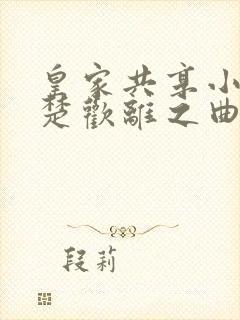 皇家共享小
楚歡離之曲
段莉